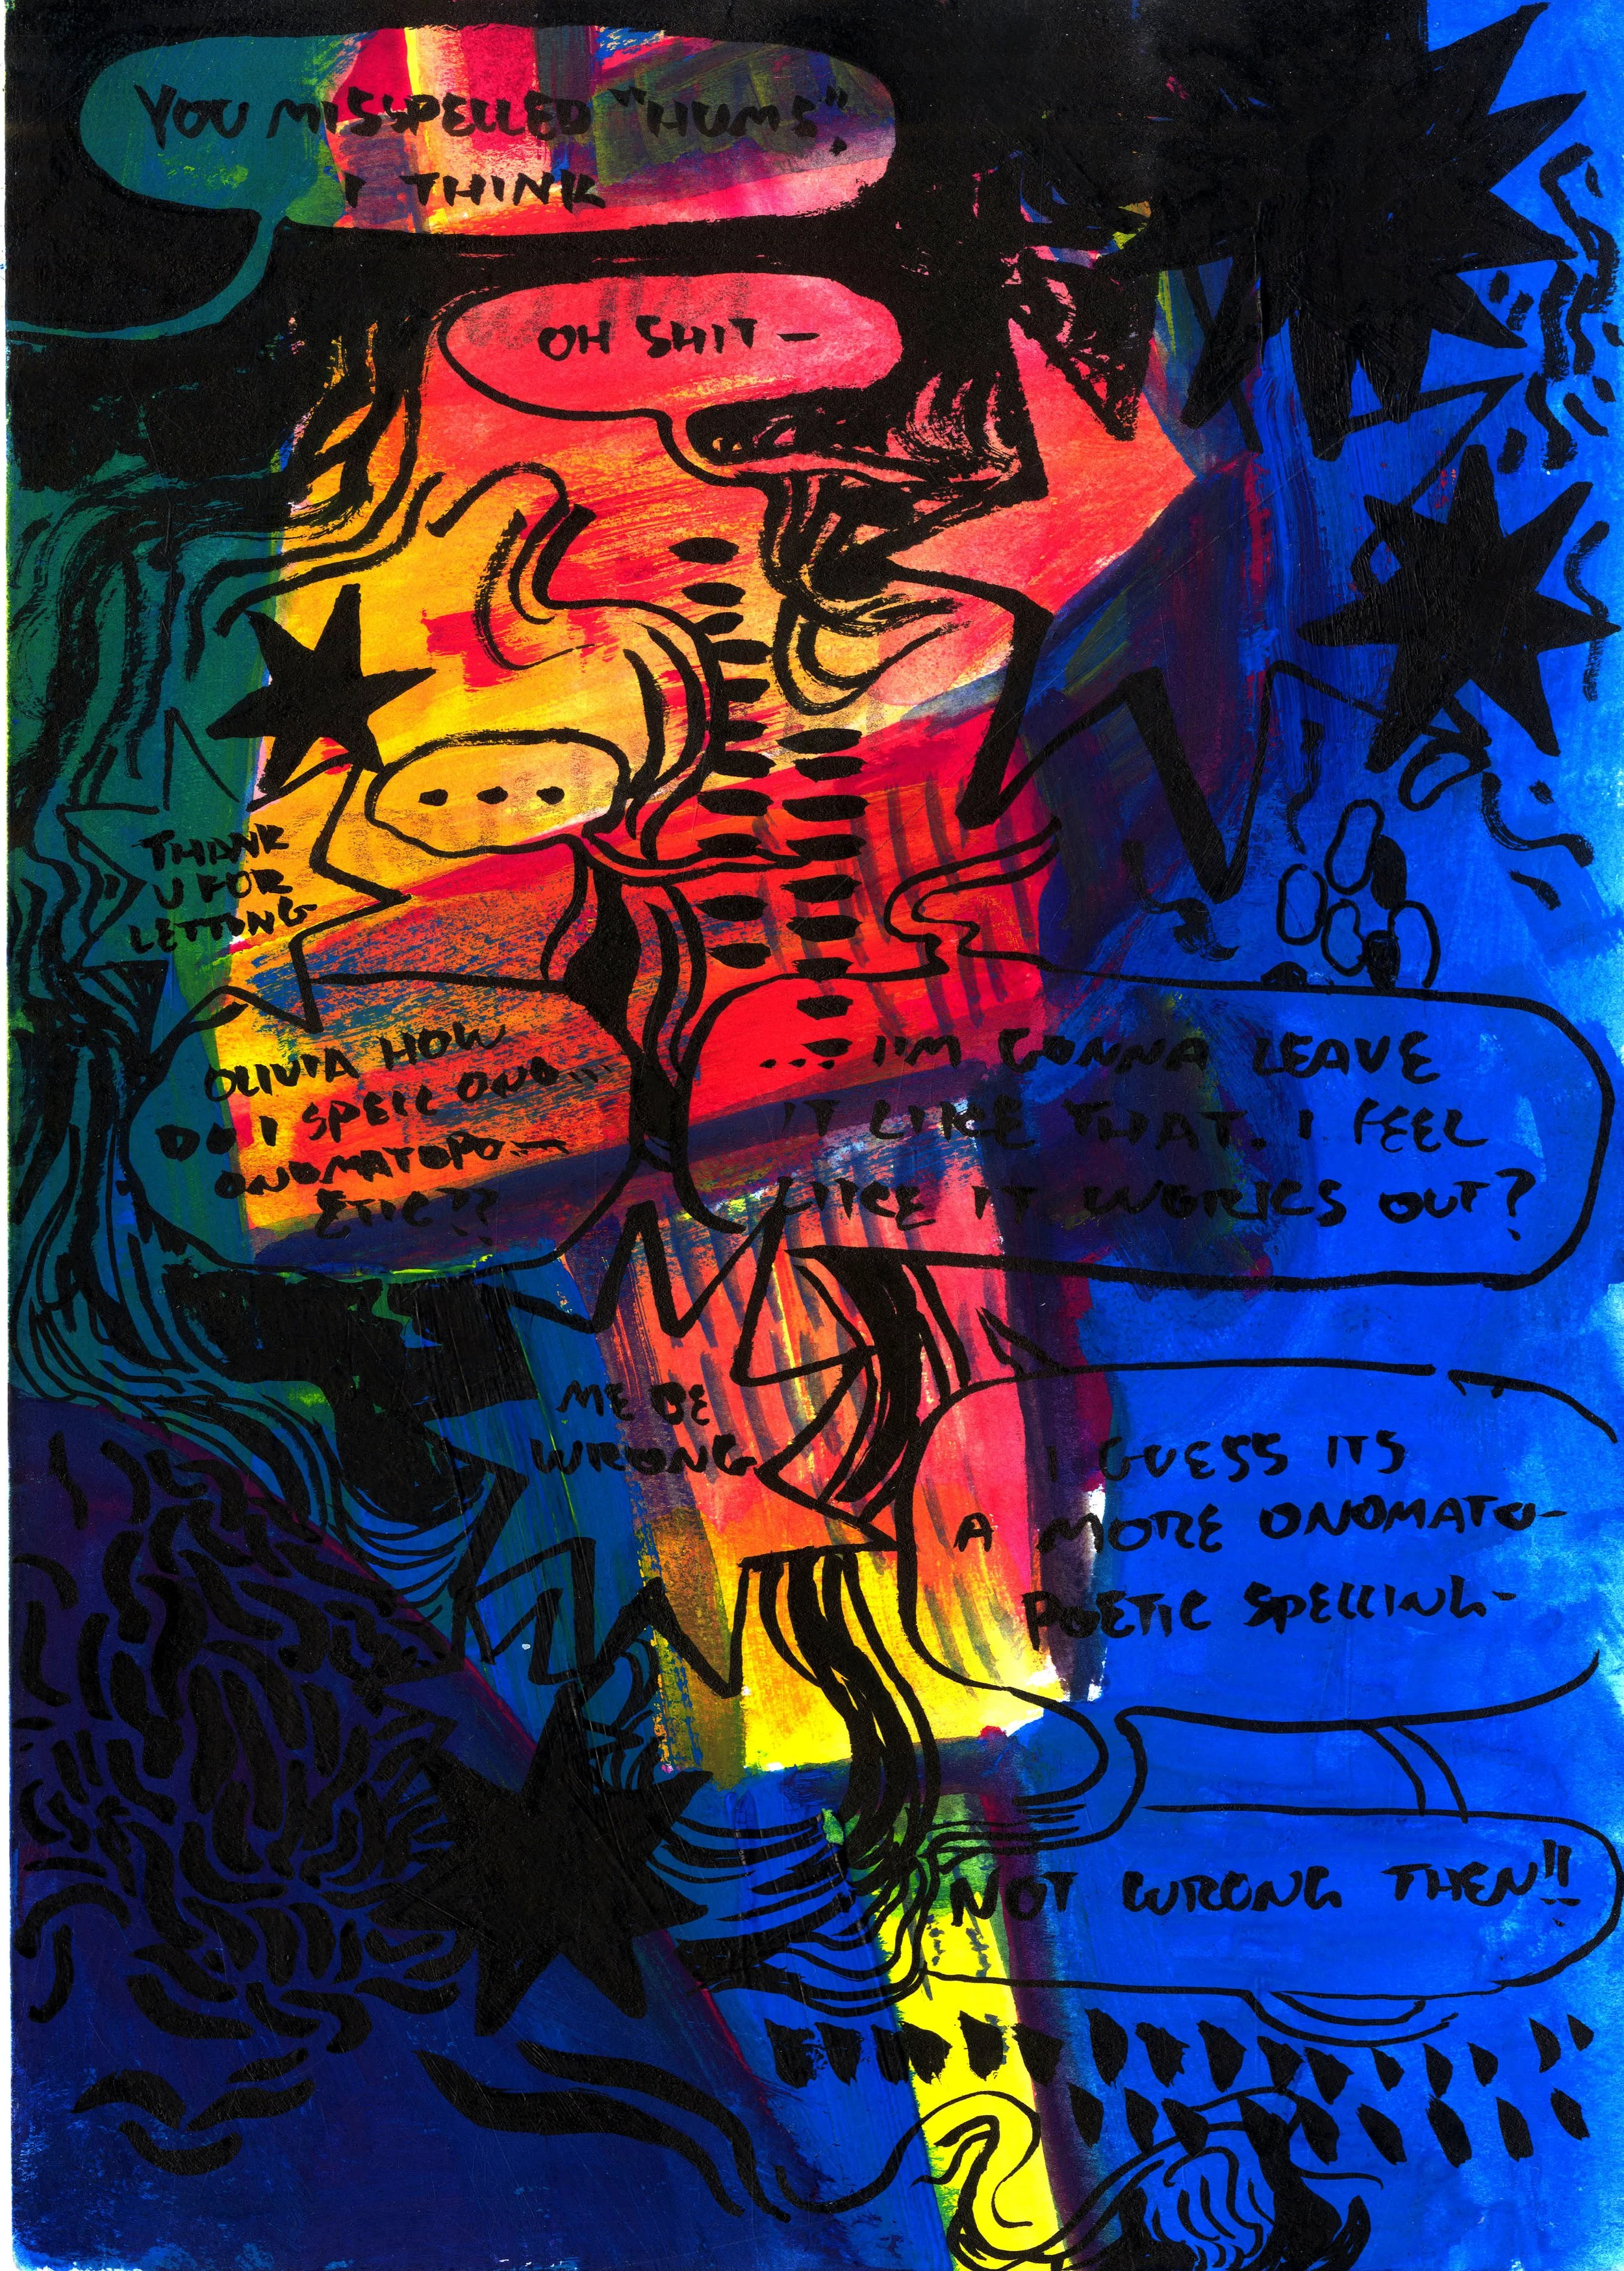 YOU MISSPELLED "HUMS",
I THINK
OH SHIT —
...
THANK
U FOR
LETTING
OLIVIA HOW
DO I SPELL ONO...
ONOMATOPO—
ETIC??
... I'M GONNA LEAVE
IT LIKE THAT. I FEEL
LIKE IT WORKS OUT?
ME BE
WRONG
I GUESS ITS
A MORE ONOMATO-
POETIC SPELLING-
NOT WRONG THEN!!